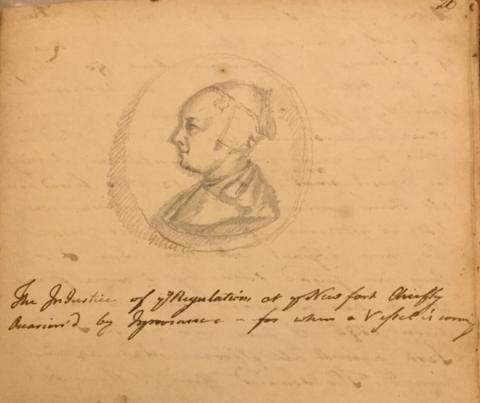 20
The InJustice of yᵉ Regulations at yᵉ New fort Chiefly
Occasion'd by Ignorance - for when a Vessel is coming